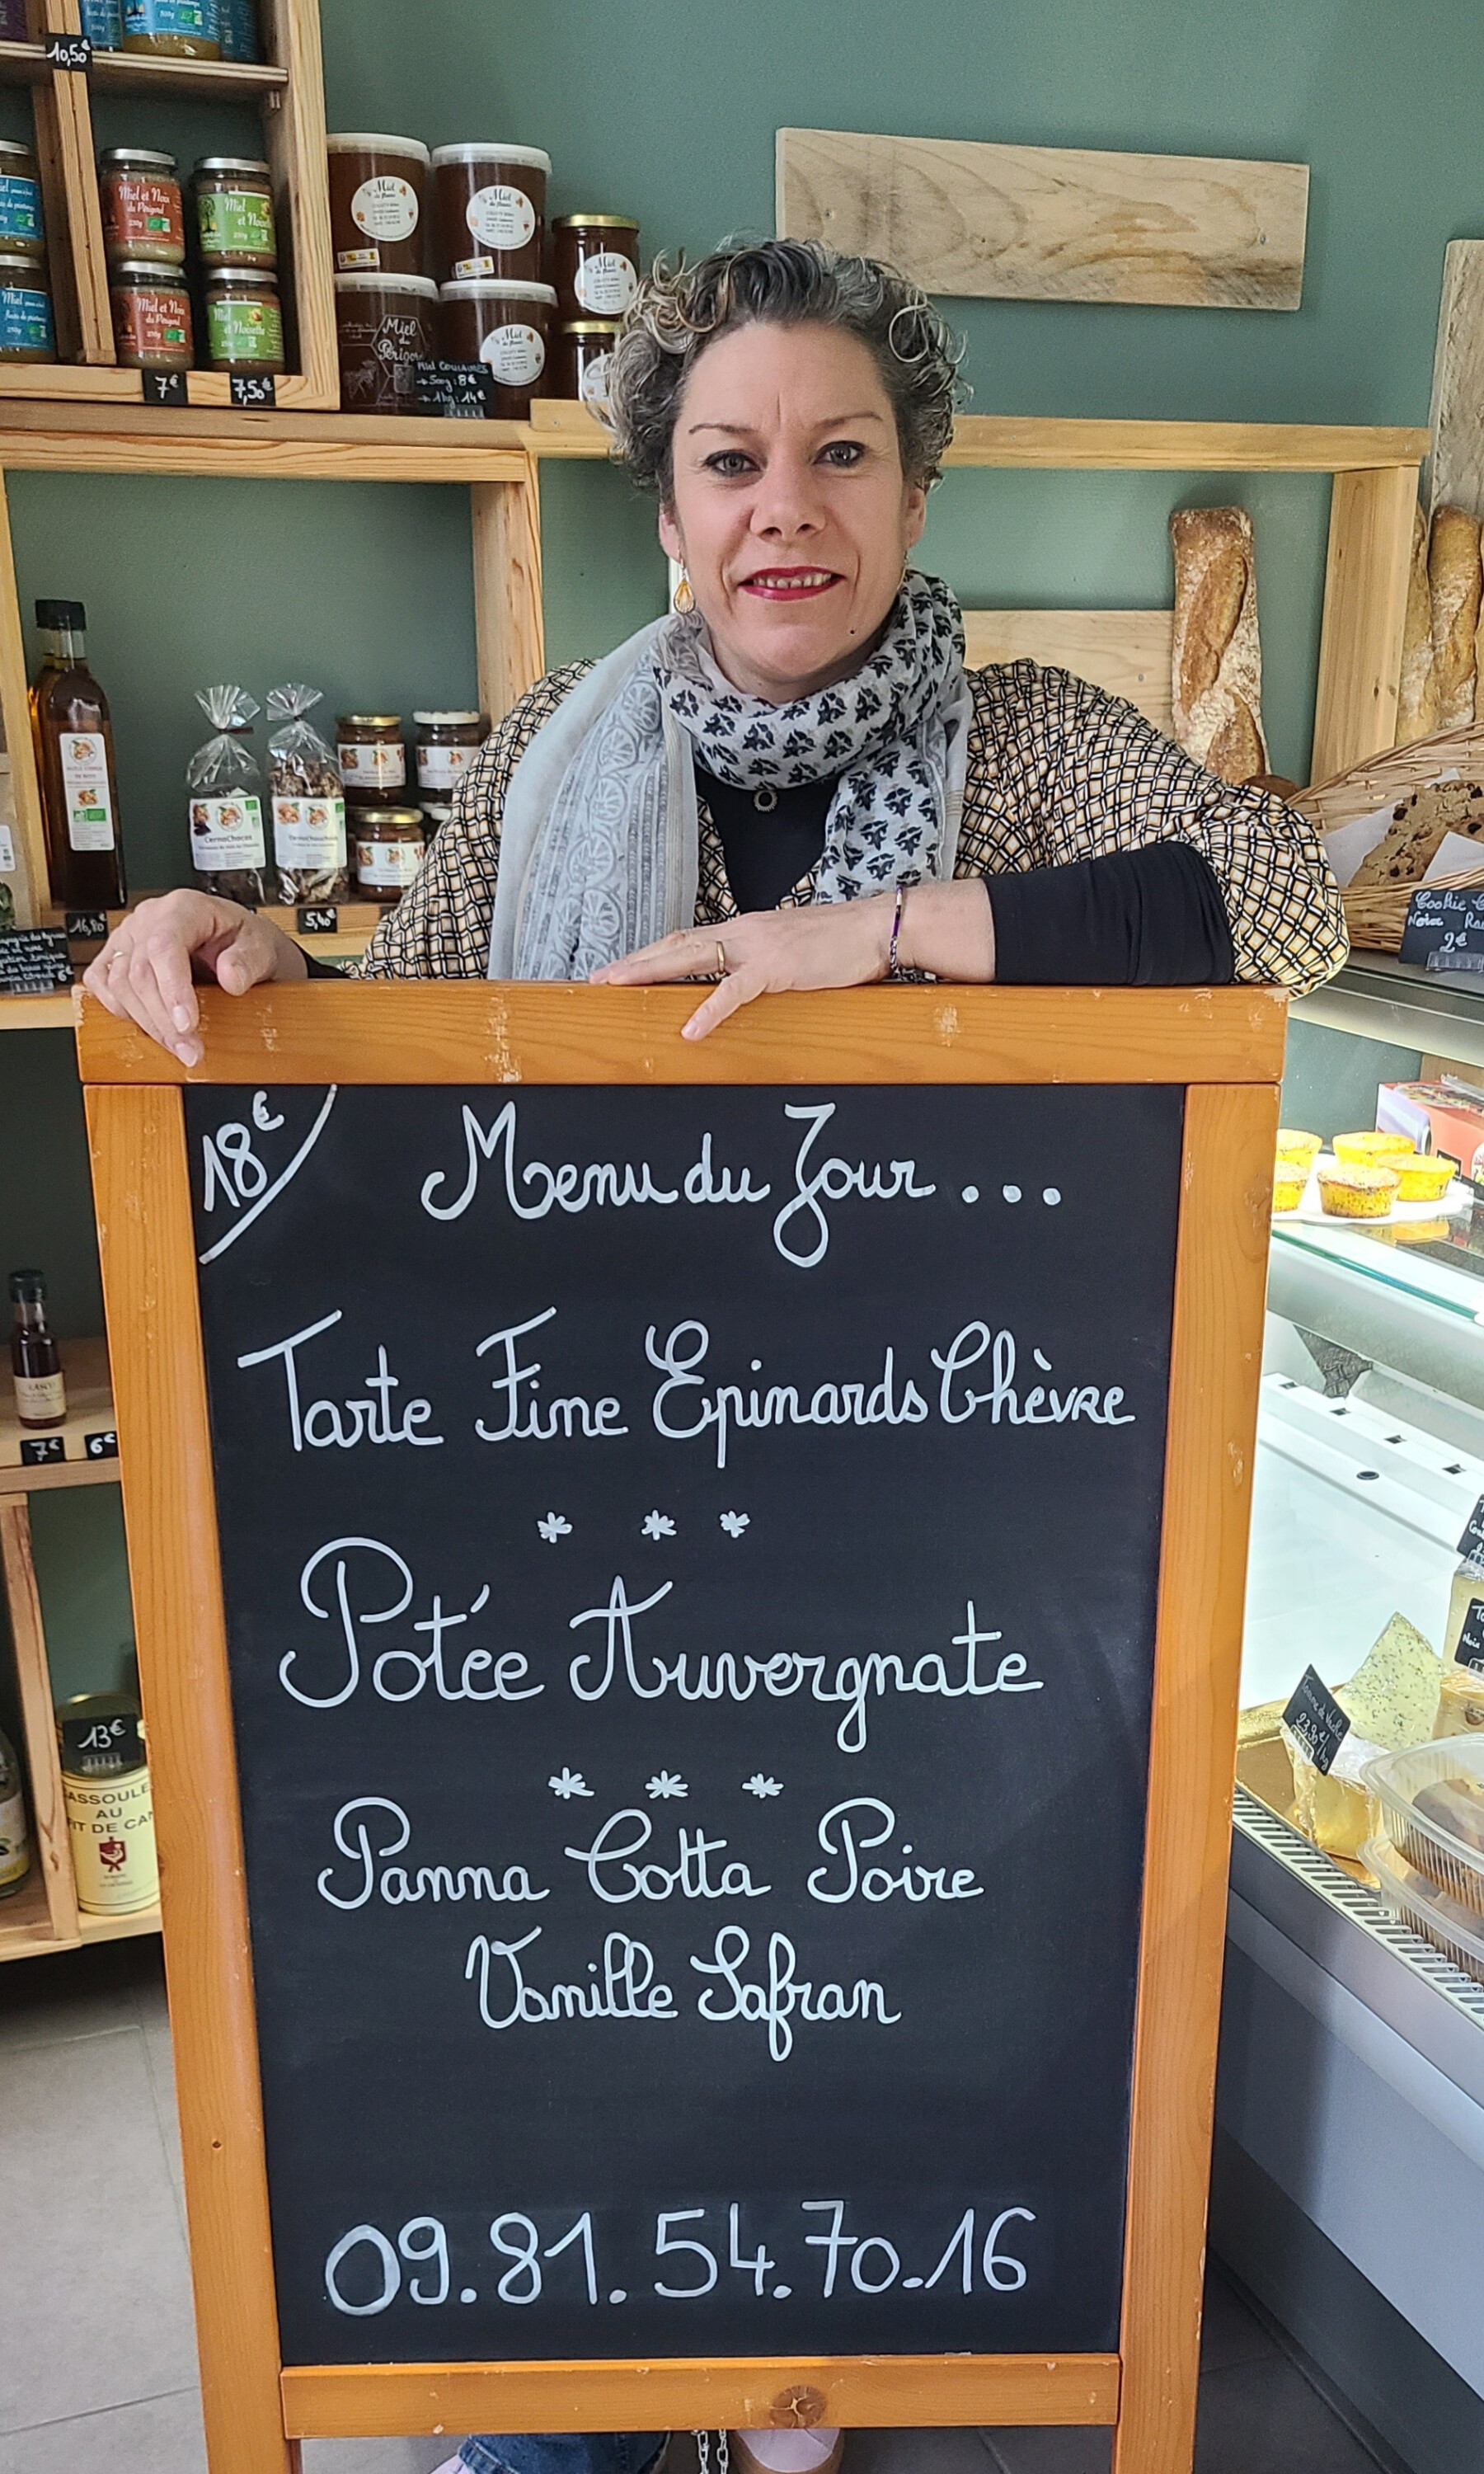 10,50€
Miel et Noix
du Périgord
Miel
et Noisette
Miel et Noix
du Périgord
Miel
et Noisette
7€
7,50€
Miel
de fleurs
Miel
de fleurs
Miel
Miel
du
Périgord
Miel
Miel COULEURES
→ 500g : 8€
→ 1kg : 14€
CernoChocat
16,80
5,40€
Cookie
Noix
2€
18€
Menu du Jour...
Tarte Fine Epinards Chèvre
* * *
Potée Auvergnate
* * *
Panna Cotta Poire
Vanille Safran
09.81.54.70.16
7€
6€
13€
ASSOULE
AU
IT DE CAN
23,90€/kg